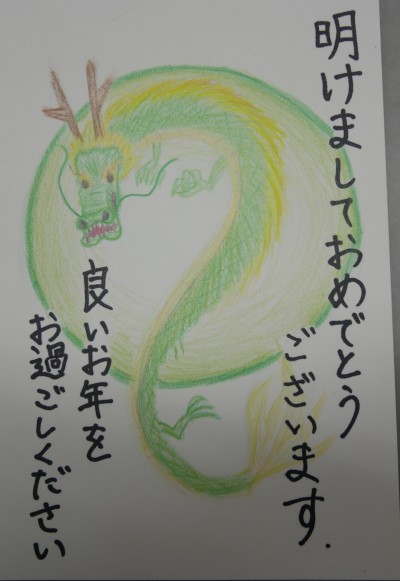 明けましておめでとう
ございます.
良いお年を
お過ごしください